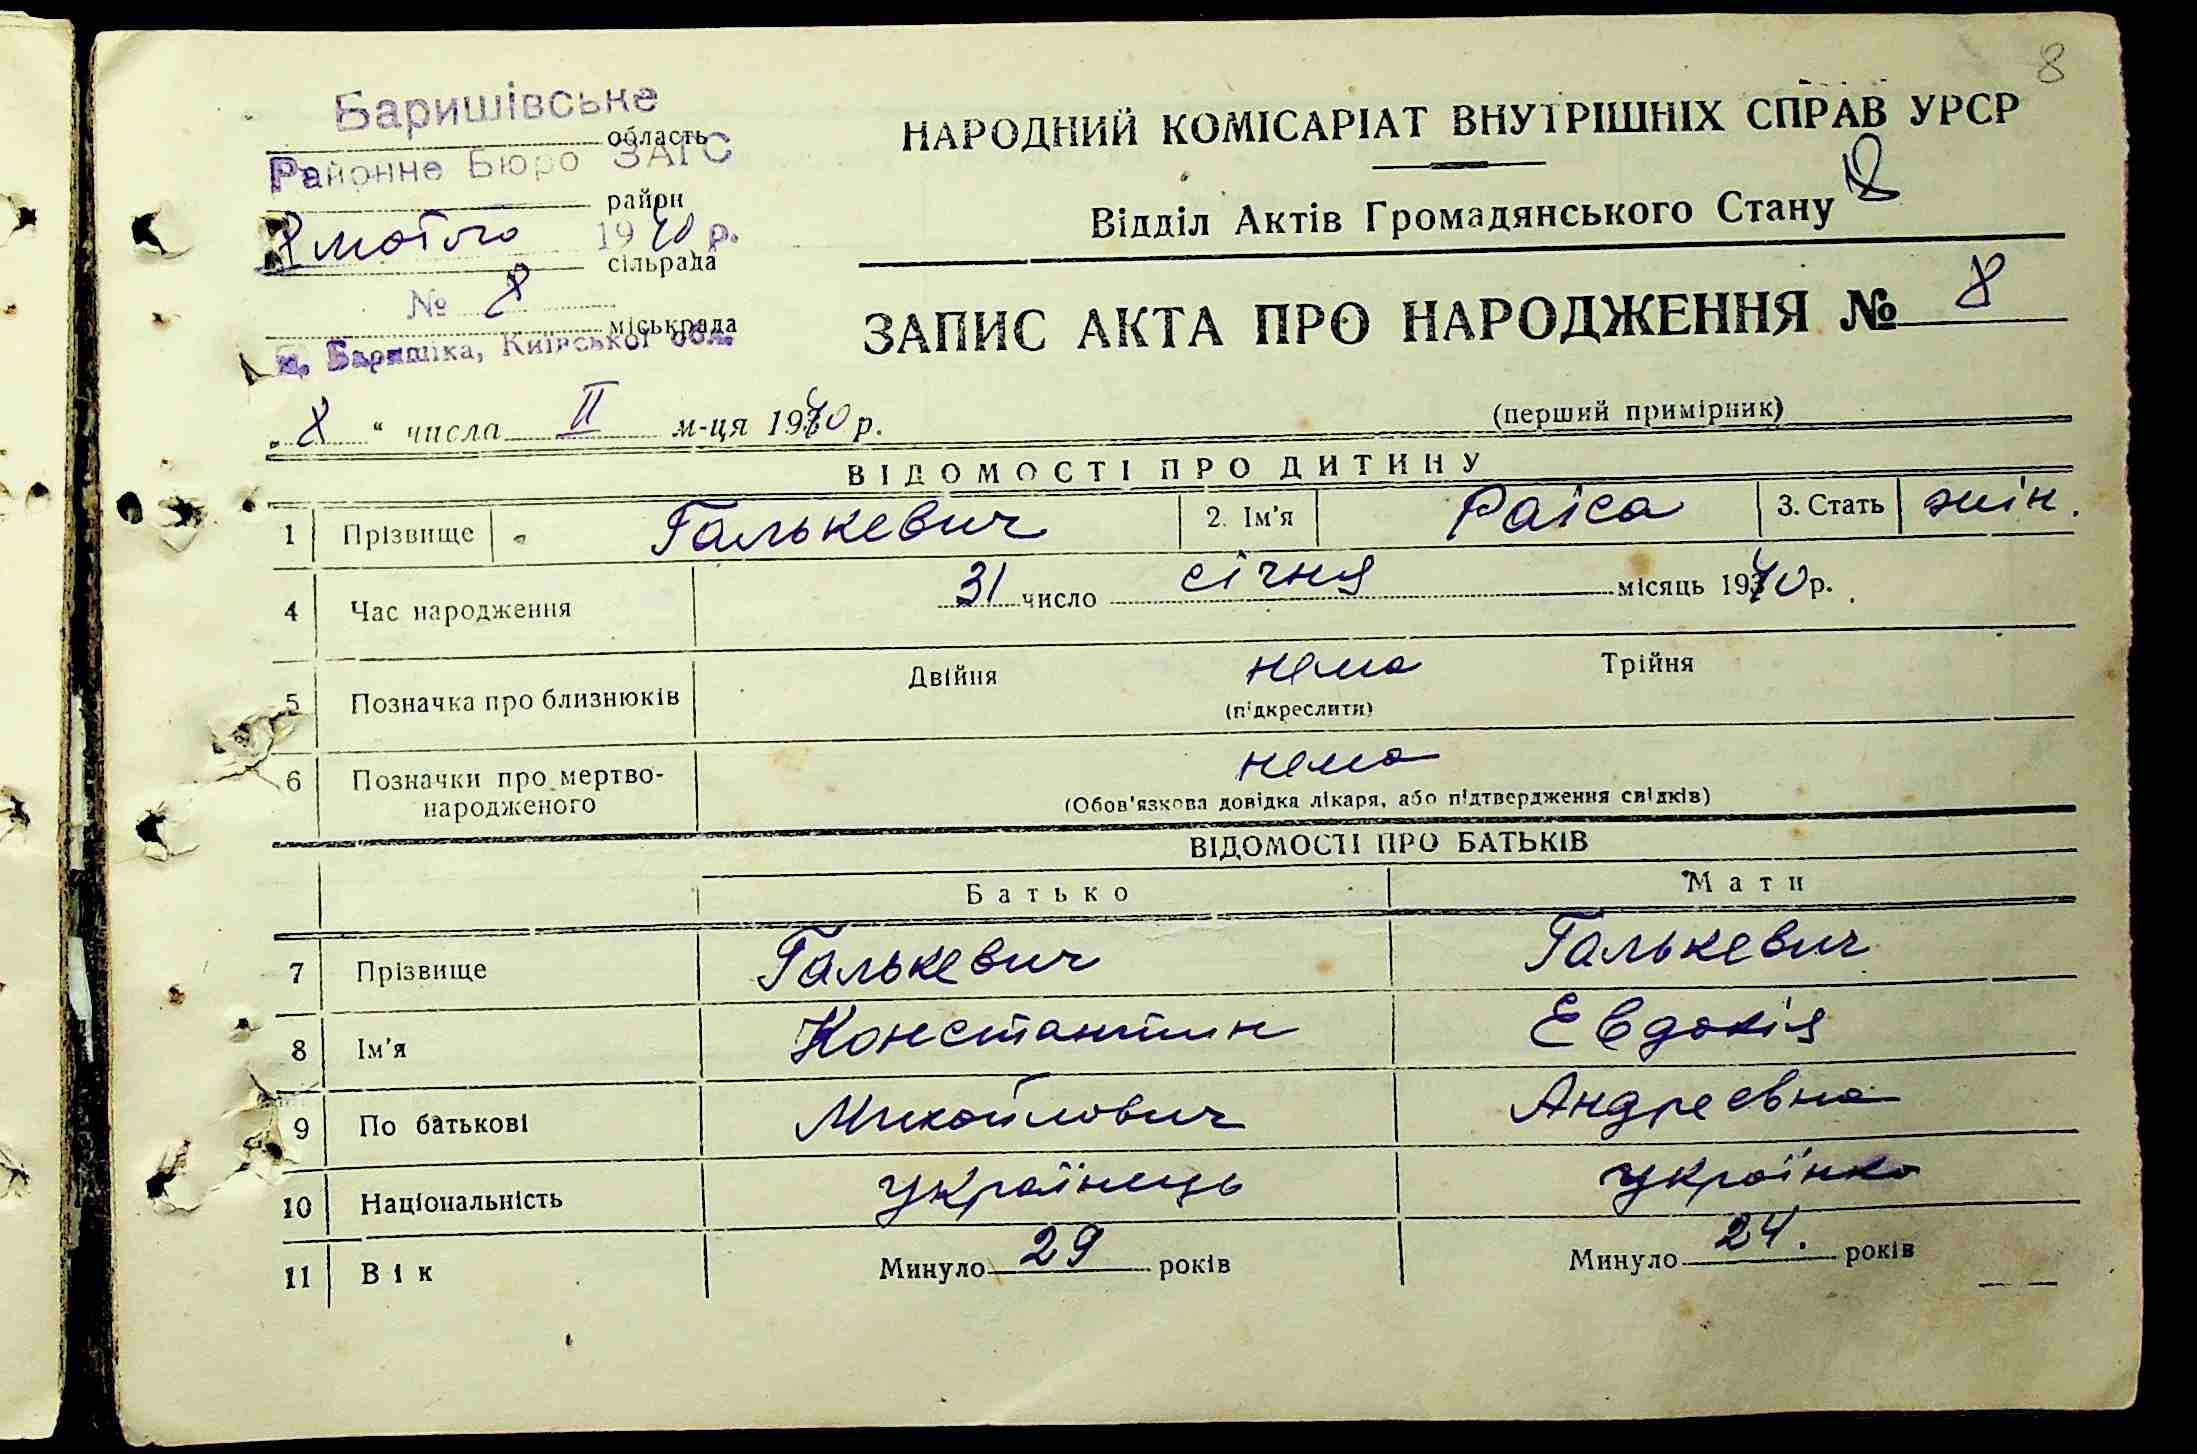 8
Баришівське
область
Районне Бюро ЗАГС
район
8 лютого 1940 р.
сільрада
№ 8
міськрада
м. Баришівка, Київської обл.
НАРОДНИЙ КОМІСАРІАТ ВНУТРІШНІХ СПРАВ УРСР
Відділ Актів Громадянського Стану
8
ЗАПИС АКТА ПРО НАРОДЖЕННЯ № 8
(перший примірник)
„8“ числа II м-ця 1940 р.
ВІДОМОСТІ ПРО ДИТИНУ
1 Прізвище Галькевич 2. Ім'я Раіса 3. Стать жін.
4 Час народження 31 число січня місяць 1940 р.
5 Позначка про близнюків Двійня нема Трійня
(підкреслити)
6 Позначки про мертво-
народженого
нема
(Обов'язкова довідка лікаря, або підтвердження свідків)
ВІДОМОСТІ ПРО БАТЬКІВ
Батько Мати
7 Прізвище Галькевич Галькевич
8 Ім'я Константин Евдокія
9 По батькові Михайлович Андреевна
10 Національність українець українка
11 Вік Минуло 29 років Минуло 24. років